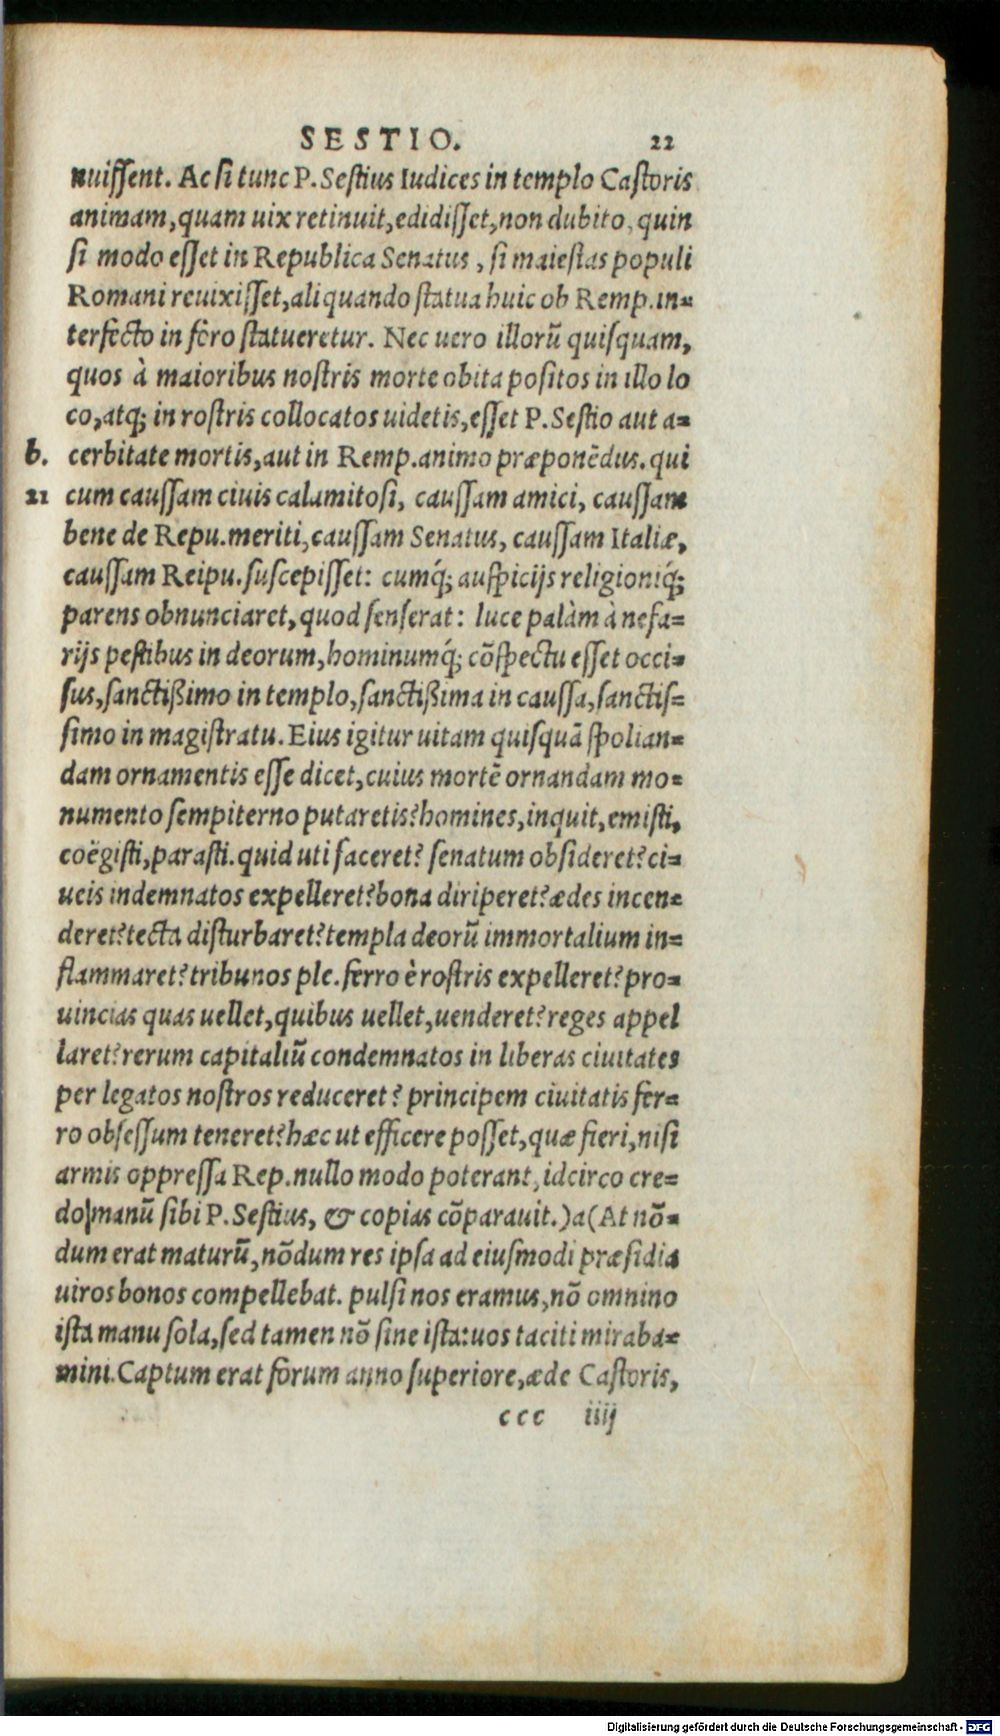 SESTIO. 22
nuissent. Ac si tunc P. Sestius Iudices in templo Castoris
animam, quam uix retinuit, edidisset, non dubito, quin
si modo esset in Republica Senatus, si maiestas populi
Romani reuixisset, aliquando statua huic ob Remp. in-
terfecto in foro statueretur. Nec uero illorũ quisquam,
quos à maioribus nostris morte obita positos in illo lo
co, atq; in rostris collocatos uidetis, esset P. Sestio aut a-
b. cerbitate mortis, aut in Remp. animo præponẽdus. qui
21 cum caussam ciuis calamitosi, caussam amici, caussam
bene de Repu. meriti, caussam Senatus, caussam Italiæ,
caussam Reipu. suscepisset: cumq́; auspicijs religioniq́;
parens obnunciaret, quod senserat: luce palàm à nefa-
rijs pestibus in deorum, hominumq́; cõspectu esset occi-
sus, sanctißimo in templo, sanctißima in caussa, sanctis-
simo in magistratu. Eius igitur uitam quisquã spolian-
dam ornamentis esse dicet, cuius mortẽ ornandam mo-
numento sempiterno putaretis? homines, inquit, emisti,
coëgisti, parasti. quid uti faceret? senatum obsideret? ci-
ueis indemnatos expelleret? bona diriperet? ædes incen-
deret? tecta disturbaret? templa deorũ immortalium in-
flammaret? tribunos ple. ferro è rostris expelleret? pro-
uincias quas uellet, quibus uellet, uenderet? reges appel
laret? rerum capitaliũ condemnatos in liberas ciuitates
per legatos nostros reduceret? principem ciuitatis fer-
ro obsessum teneret? hæc ut efficere posset, quæ fieri, nisi
armis oppressa Rep. nullo modo poterant, idcirco cre-
do manũ sibi P. Sestius, & copias cõparauit.)a(At nõ-
dum erat maturũ, nõdum res ipsa ad eiusmodi præsidia
uiros bonos compellebat. pulsi nos eramus, nõ omnino
ista manu sola, sed tamen nõ sine ista: uos taciti miraba-
mini. Captum erat forum anno superiore, æde Castoris,
ccc iiij
Digitalisierung gefördert durch die Deutsche Forschungsgemeinschaft - DFG